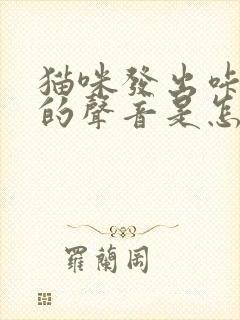 猫咪發出咔
的聲音是怎
羅蘭岡